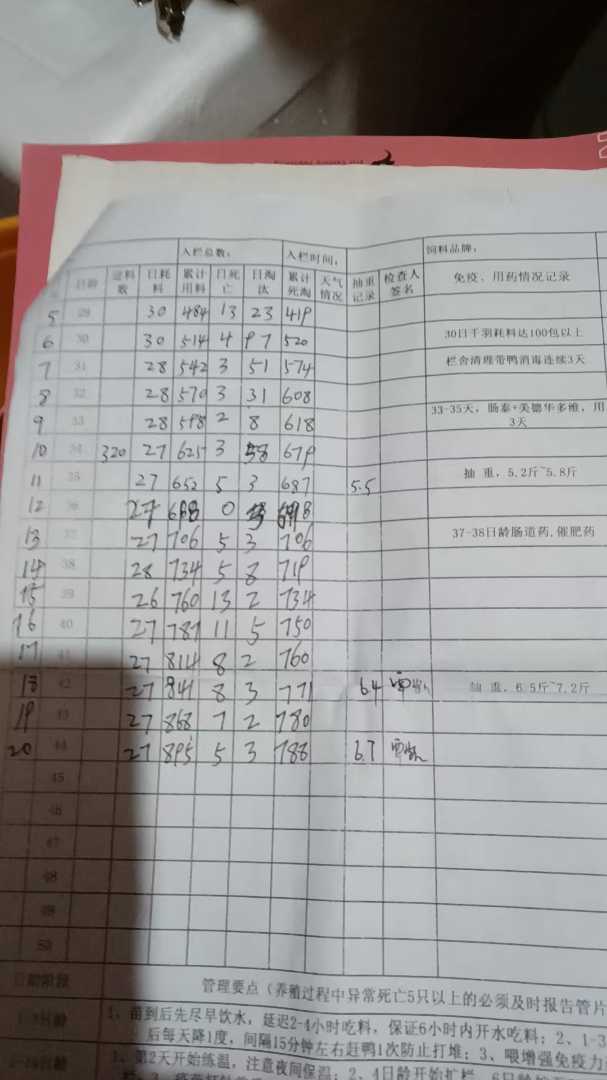 入栏总数： 入栏时间： 饲料品牌：
日龄 进料数 日耗料 累计用料 日死亡 日淘汰 累计死淘 天气情况 抽重记录 检查人签名 免疫、用药情况记录
5 29 30 484 13 23 419
6 30 30 514 4 97 520 30日千羽耗料达100包以上
7 31 28 542 3 51 574 栏舍清理带鸭消毒连续3天
8 32 28 570 3 31 608
9 33 28 598 2 8 618 33-35天，肠泰+美德华多维，用3天
10 34 320 27 625 3 58 679
11 35 27 652 5 3 687 5.5 抽 重，5.2斤~5.8斤
12 36 27 0 698
13 37 27 706 5 3 706 37-38日龄肠道药,催肥药
14 38 28 734 5 8 719
15 39 26 760 13 2 734
16 40 27 787 11 5 750
17 41 27 814 8 2 760
18 42 27 841 8 3 771 6.4 抽 重，6.5斤~7.2斤
19 43 27 868 7 2 780
20 44 27 895 5 3 788 6.7
45
46
47
48
49
50
日龄阶段 管理要点（养殖过程中异常死亡5只以上的必须及时报告管片
1-3日龄 1、苗到后先尽早饮水，延迟2-4小时吃料，保证6小时内开水吃料；2、1-3
后每天降1度，间隔15分钟左右赶鸭1次防止打堆；3、喂增强免疫力
1、第2天开始练温，注意夜间保温；2、4日龄开始扩栏，6日龄